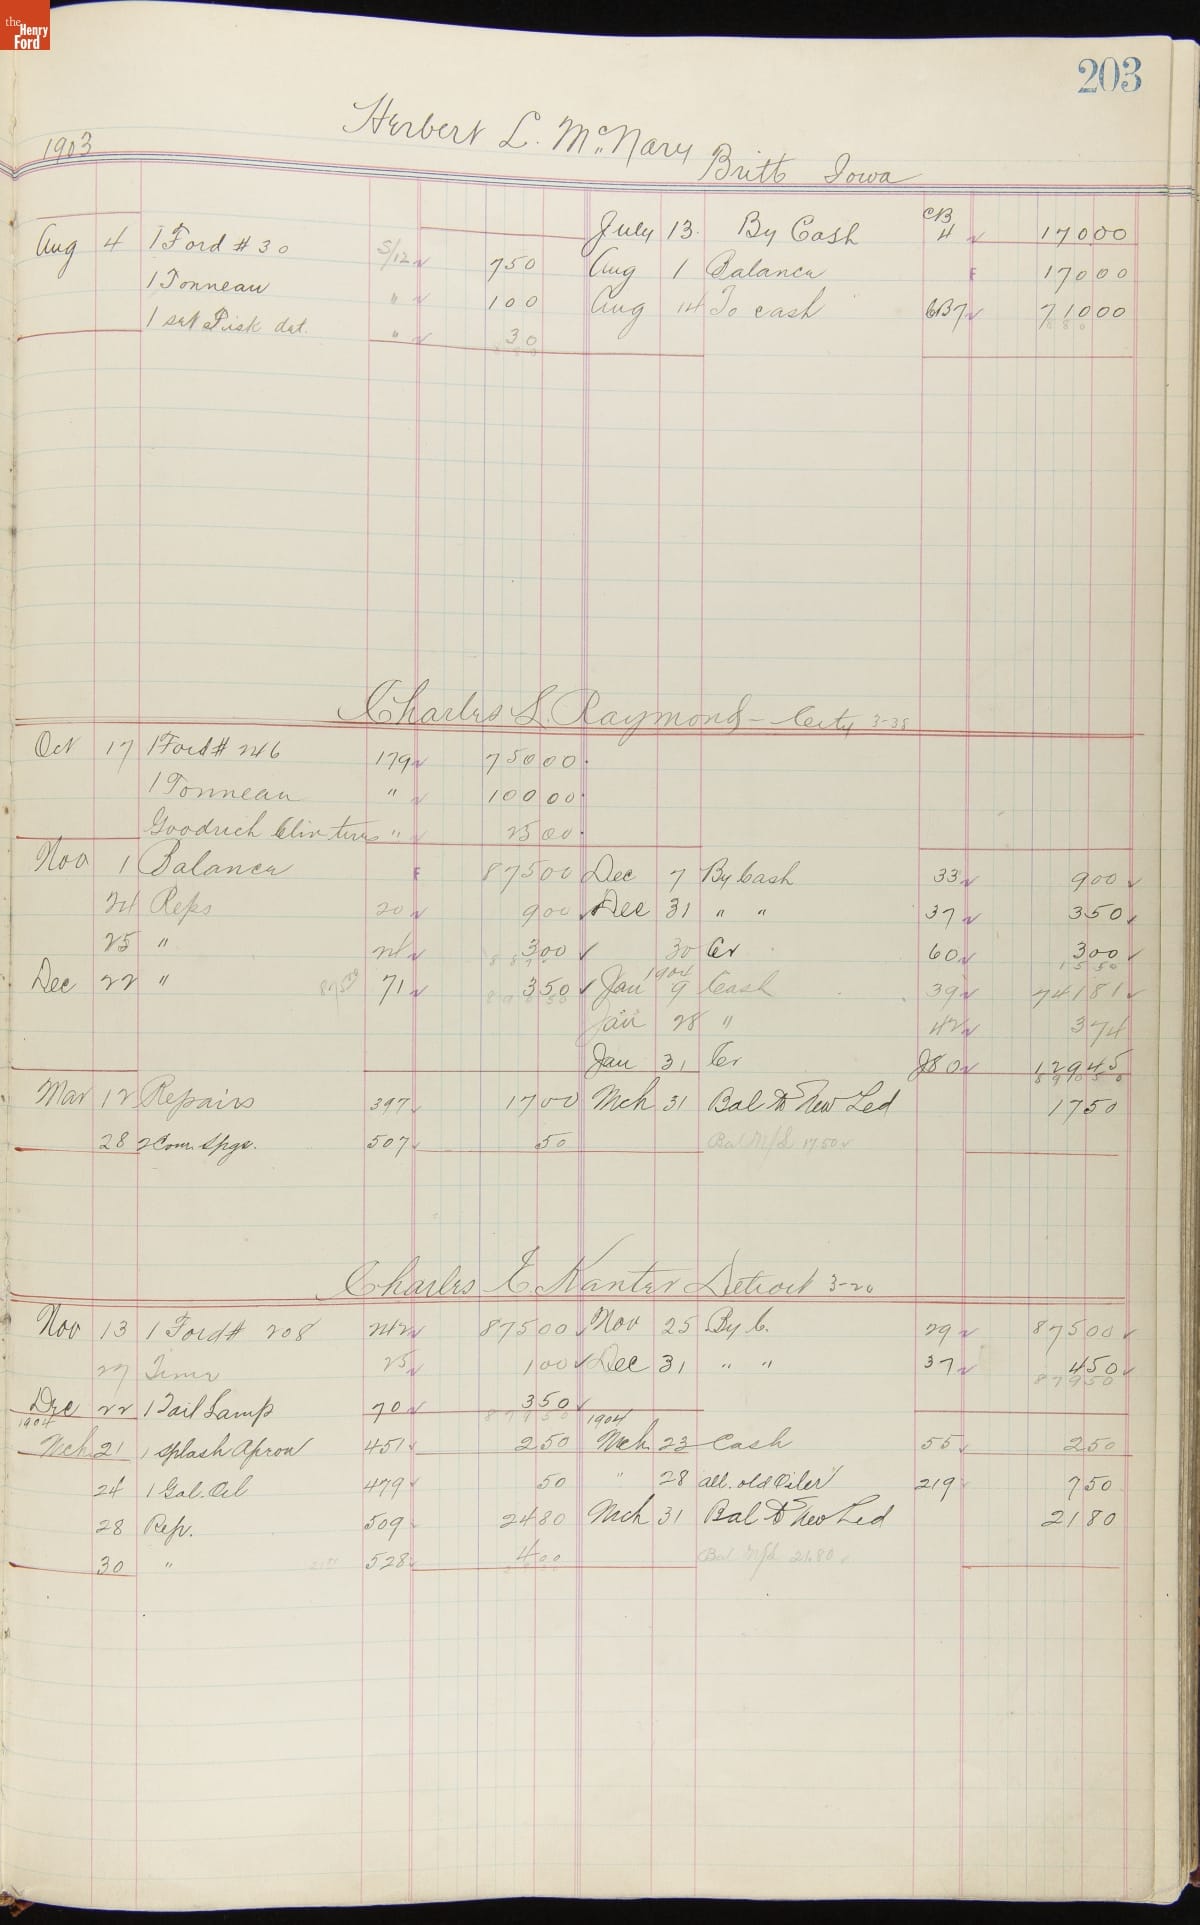 the Henry Ford
203
Herbert L. McNary
1903
Britt Iowa
July 13. By Cash CB 4 17000
Aug 4 1 Ford # 30 S/12 750 Aug 1 Balance F 17000
1 Tonneau " 100 Aug 14 To cash CB7 71000
1 set Disk det. " 30
880
Charles L. Raymond - City 3-38
Oct 17 1 Ford # 246 179 75000
1 Tonneau " 10000
Goodrich Clin tires " 2500
Nov 1 Balance F 87500 Dec 7 By Cash 33 900
24 Reps 20 900 Dec 31 " " 37 350
25 " 24 300 30 Cr 60 300
1550
Dec 22 " 71 350 Jan 1904 9 Cash 39 74181
89050
Jan 28 " 42 374
Jan 31 Cr J80 12945
89050
Mar 12 Repairs 397 1700 Mch 31 Bal to New Led 1750
28 2 Com. Spgs. 507 50 Bal N/L 1750
Charles E Kanter Detroit 3-20
Nov 13 1 Ford # 208 242 87500 Nov 25 By C. 29 87500
27 Timer 25 100 Dec 31 " " 37 450
87950
Dec 22 1 Tail Lamp 70 350
87950
1904 1904
Mch 21 1 Splash Apron 451 250 Mch 23 Cash 55 250
24 1 Gal. Oil 479 50 " 28 all. old Oiler 219 750
28 Rep. 509 2480 Mch 31 Bal to New Led 2180
30 " 528 400 Bal N/L 21.80